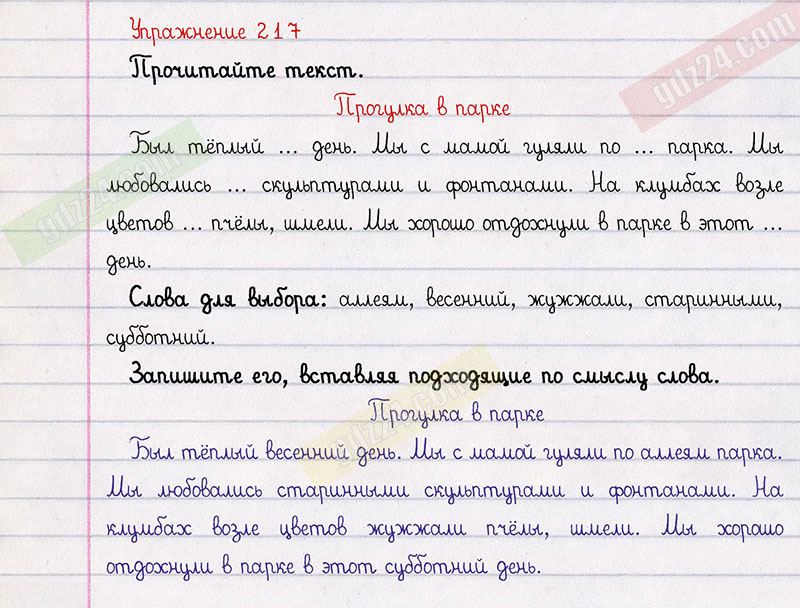 Упражнение 217
Прочитайте текст.
Прогулка в парке
Был тёплый ... день. Мы с мамой гуляли по ... парка. Мы
любовались ... скульптурами и фонтанами. На клумбах возле
цветов ... пчёлы, шмели. Мы хорошо отдохнули в парке в этот ...
день.
Слова для выбора: аллеям, весенний, жужжали, старинными,
субботний.
Запишите его, вставляя подходящие по смыслу слова.
Прогулка в парке
Был тёплый весенний день. Мы с мамой гуляли по аллеям парка.
Мы любовались старинными скульптурами и фонтанами. На
клумбах возле цветов жужжали пчёлы, шмели. Мы хорошо
отдохнули в парке в этот субботний день.
gdz24.com
gdz24.com
gdz24.com